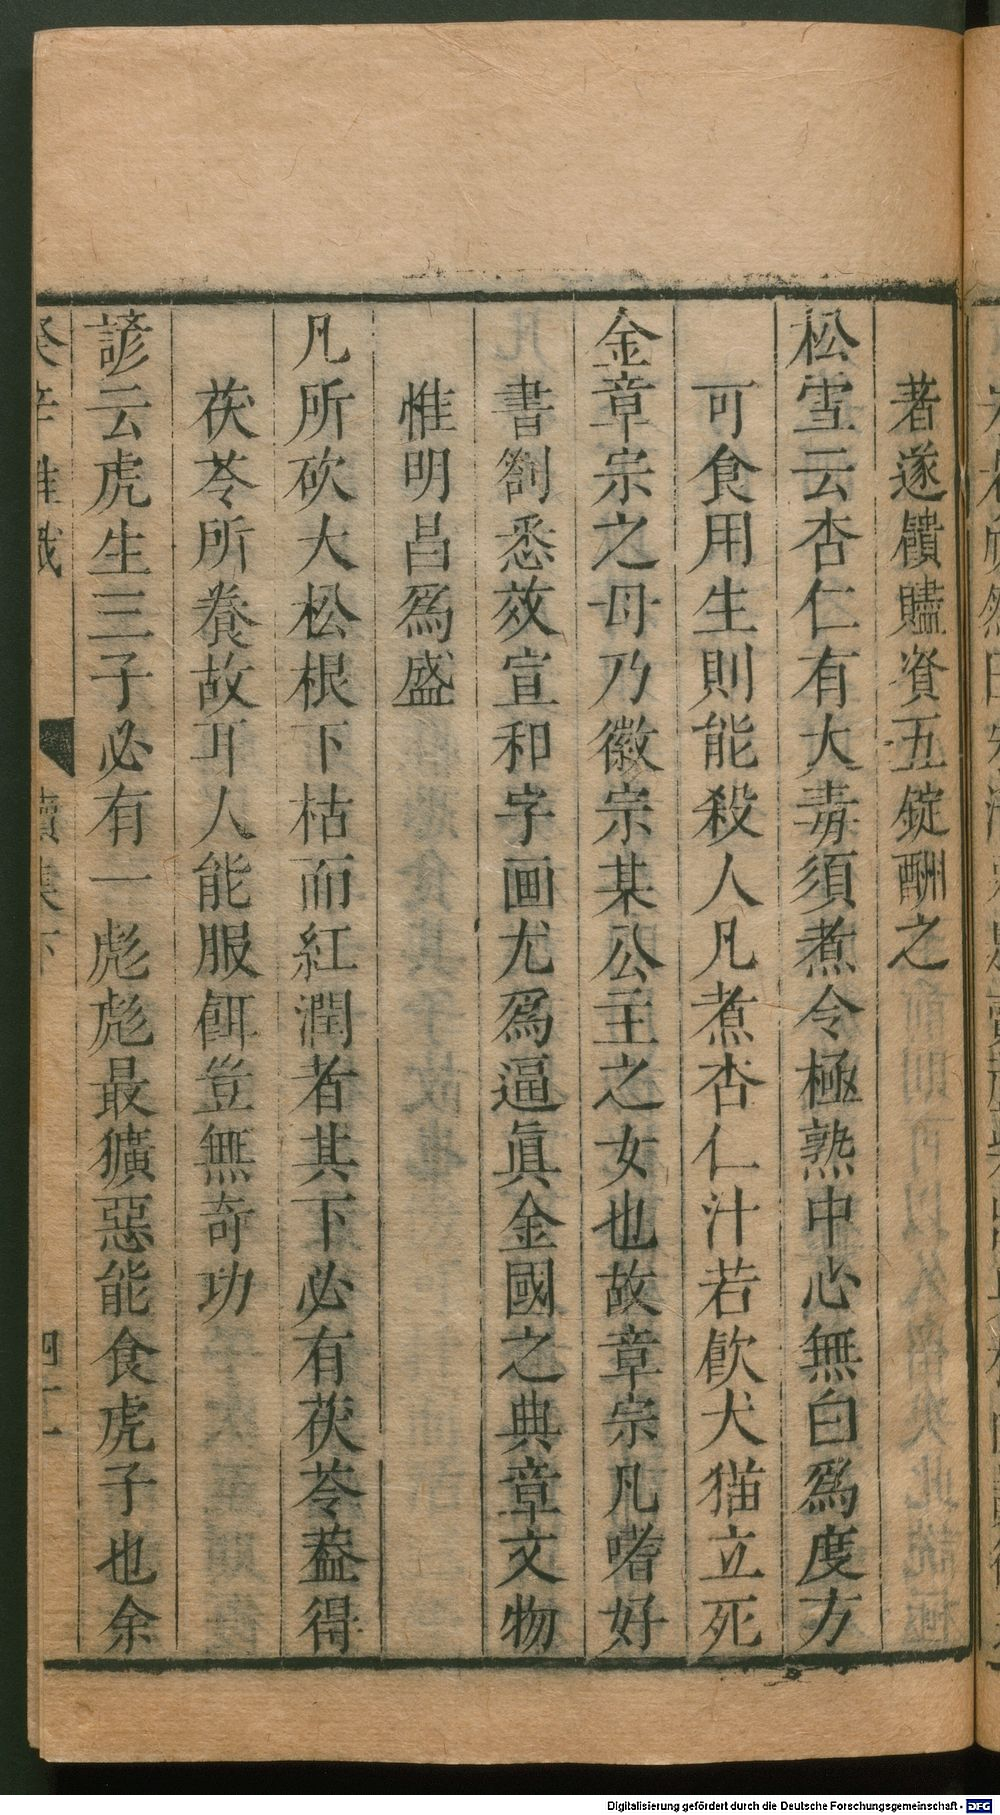 著遂饋贐資五錠酬之
松雪云杏仁有大毒須煮令極熟中心無白爲度方
可食用生則能殺人凡煮杏仁汁若飲犬猫立死
金章宗之母乃徽宗某公主之女也故章宗凡嗜好
書劄悉效宣和字画尤爲逼眞金國之典章文物
惟明昌爲盛
凡所砍大松根下枯而紅潤者其下必有茯苓葢得
茯苓所養故耳人能服餌豈無奇功
諺云虎生三子必有一彪彪最獷惡能食虎子也余
癸辛雜識 續集下 四十一
Digitalisierung gefördert durch die Deutsche Forschungsgemeinschaft - DFG